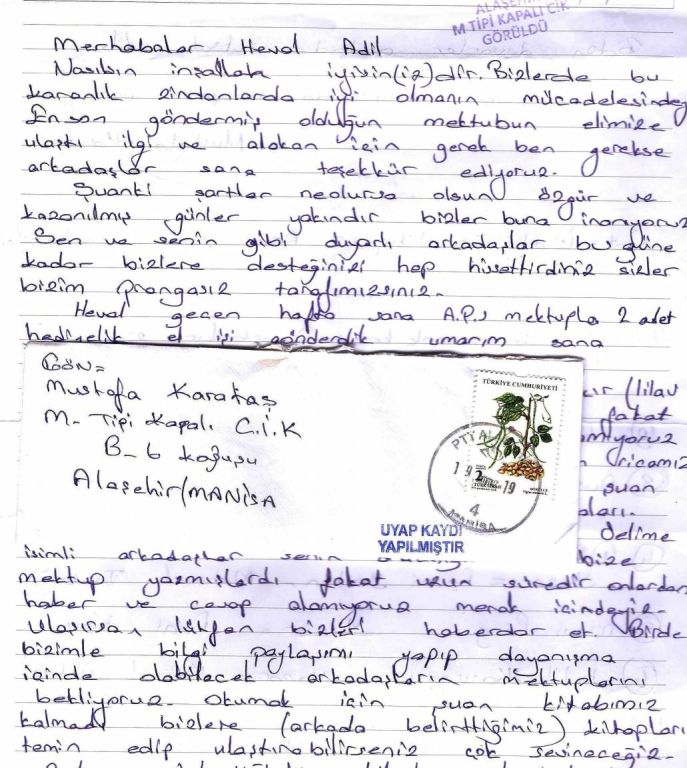 ALAŞEHİR
M TİPİ KAPALI CİK
GÖRÜLDÜ
Merhabalar Heval Adil
Nasılsın inşallah iyisin(iz)dir. Bizlerde bu
karanlık zindanlarda iyi olmanın mücadelesindey
En son göndermiş olduğun mektubun elimize
ulaştı ilgi ve alakan için gerek ben gerekse
arkadaşlar sana teşekkür ediyoruz.
Şuanki şartlar neolursa olsun özgür ve
kazanılmış günler yakındır bizler buna inanıyoruz
Sen ve senin gibi duyarlı arkadaşlar bu güne
kadar bizlere desteğinizi hep hissettirdiniz sizler
bizim prangasız tarafımızsınız.
Heval geçen hafta sana A.P.S mektupla 2 adet
hediyelik el işi gönderdik umarım sana
GÖN=
Mustafa Karataş
M- Tipi Kapalı C.İ.K
B-6 Koğuşu
Alaşehir/MANİSA
TÜRKİYE CUMHURİYETİ
MANİSA
UYAP KAYDI
YAPILMIŞTIR
fakat
ricamız
şuan
delime
bize
isimli arkadaşlar senin
mektup yazmışlardı fakat uzun süredir onlardan
haber ve cevap alamıyoruz merak içindeyiz.
Ulaşırsan lütfen bizleri haberdar et. Birde
bizimle bilgi paylaşımı yapıp dayanışma
içinde olabilecek arkadaşların mektuplarını
bekliyoruz. Okumak için şuan kitabımız
kalmadı bizlere (arkada belirttiğimiz) kitapları
temin edip ulaştırabilirseniz çok sevineceğiz.